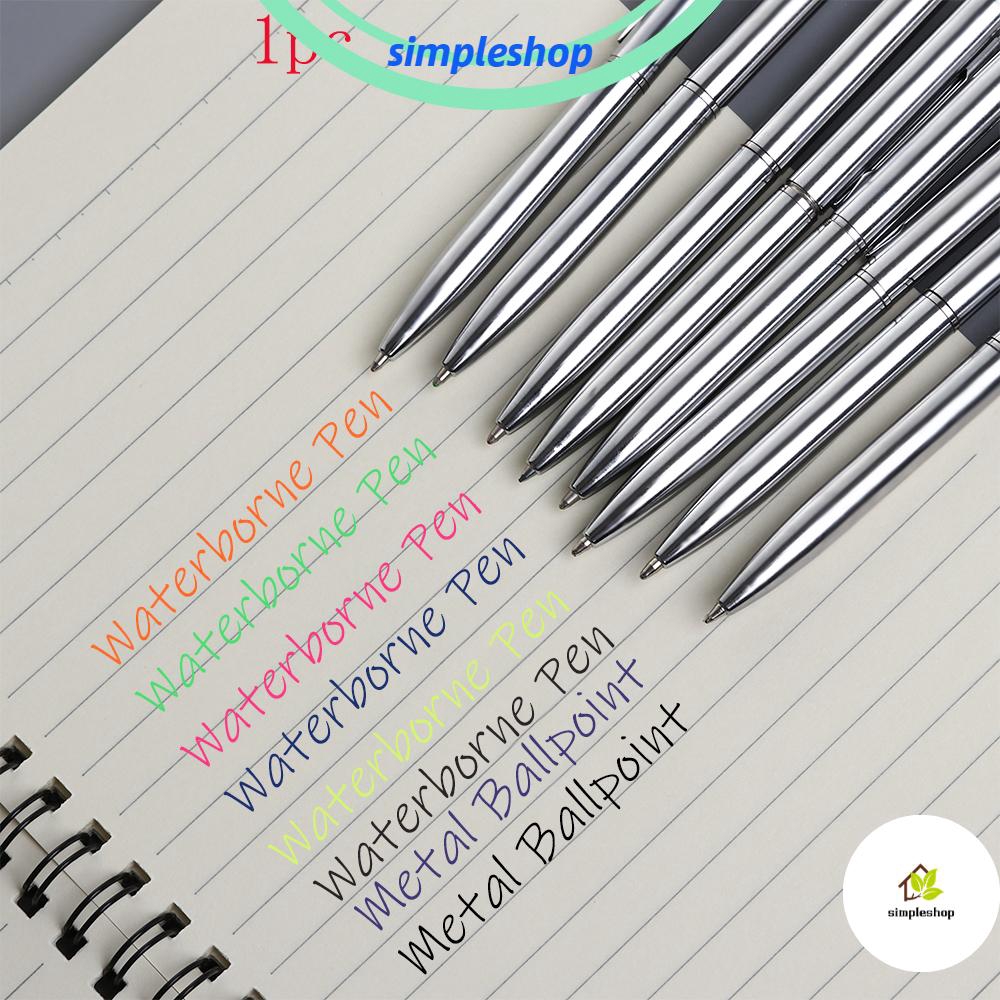 1pc
simpleshop
Waterborne Pen
Waterborne Pen
Waterborne Pen
Waterborne Pen
Waterborne Pen
Waterborne Pen
Metal Ballpoint
Metal Ballpoint
simpleshop